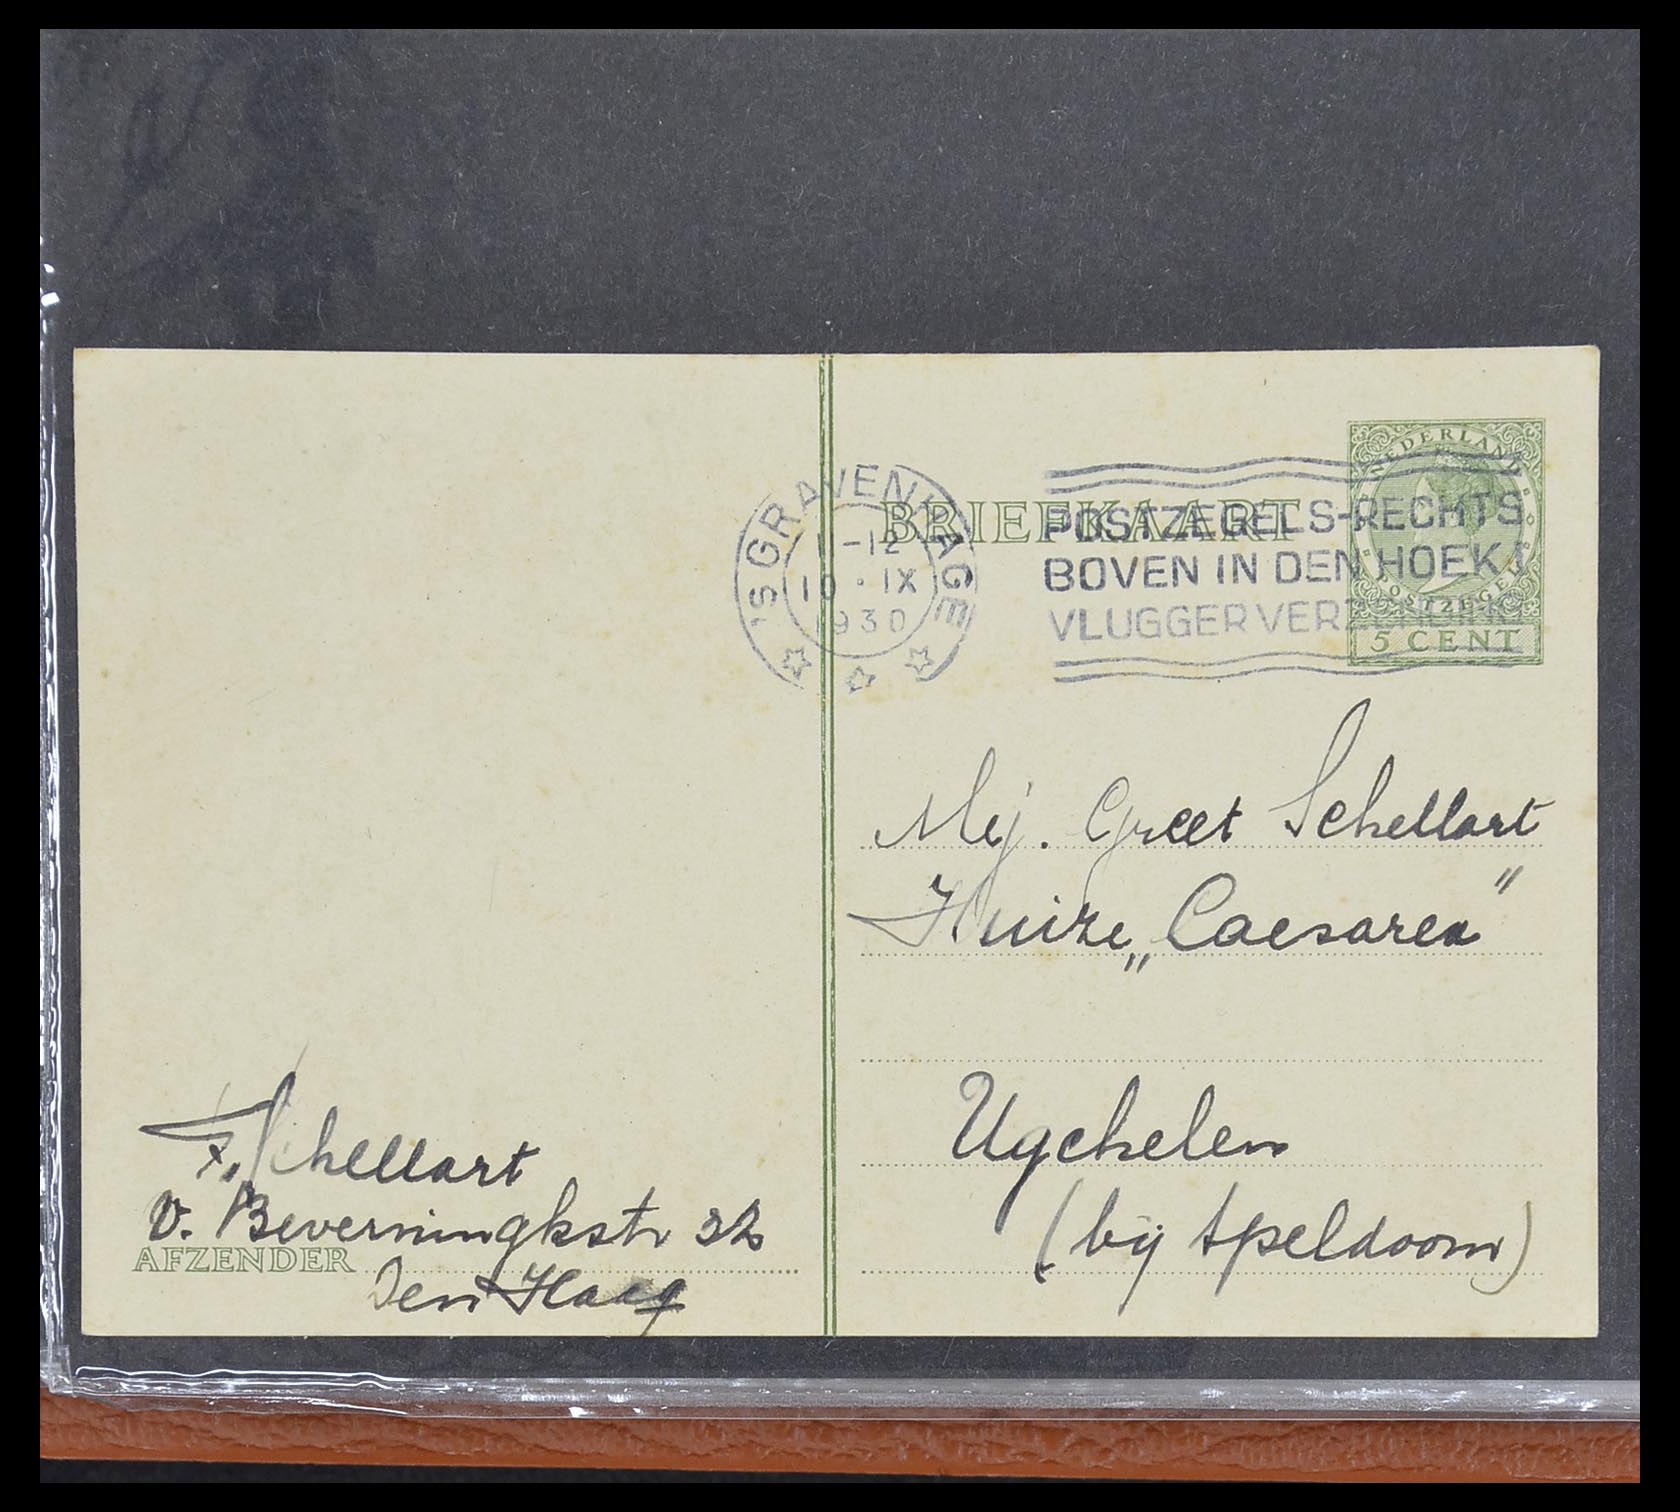 BRIEFKAART
NEDERLAND
POSTZEGEL
5 CENT
'S GRAVENHAGE
-12
10 · IX
1930
POSTZEGELS-RECHTS
BOVEN IN DEN HOEK
VLUGGER VERZENDING
Mej. Greet Schellart
Huize „Caesarea"
Ugchelen
(bij Apeldoorn)
F. Schellart
v. Beverningkstr 32
AFZENDER
Den Haag